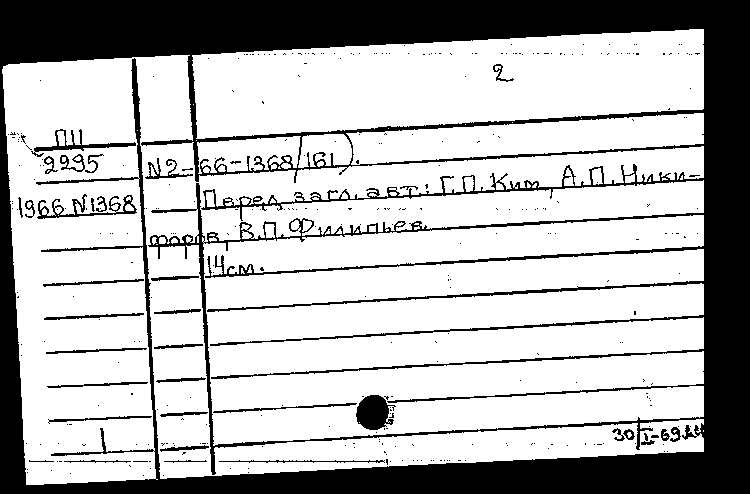 2
ПЦ
2295
1966 N1368
N2-66-1368/161).
Перед загл. авт.: Г.П. Ким, А.П. Ники-
форов, В.П. Филипьев.
14 см.
1
30/I-69